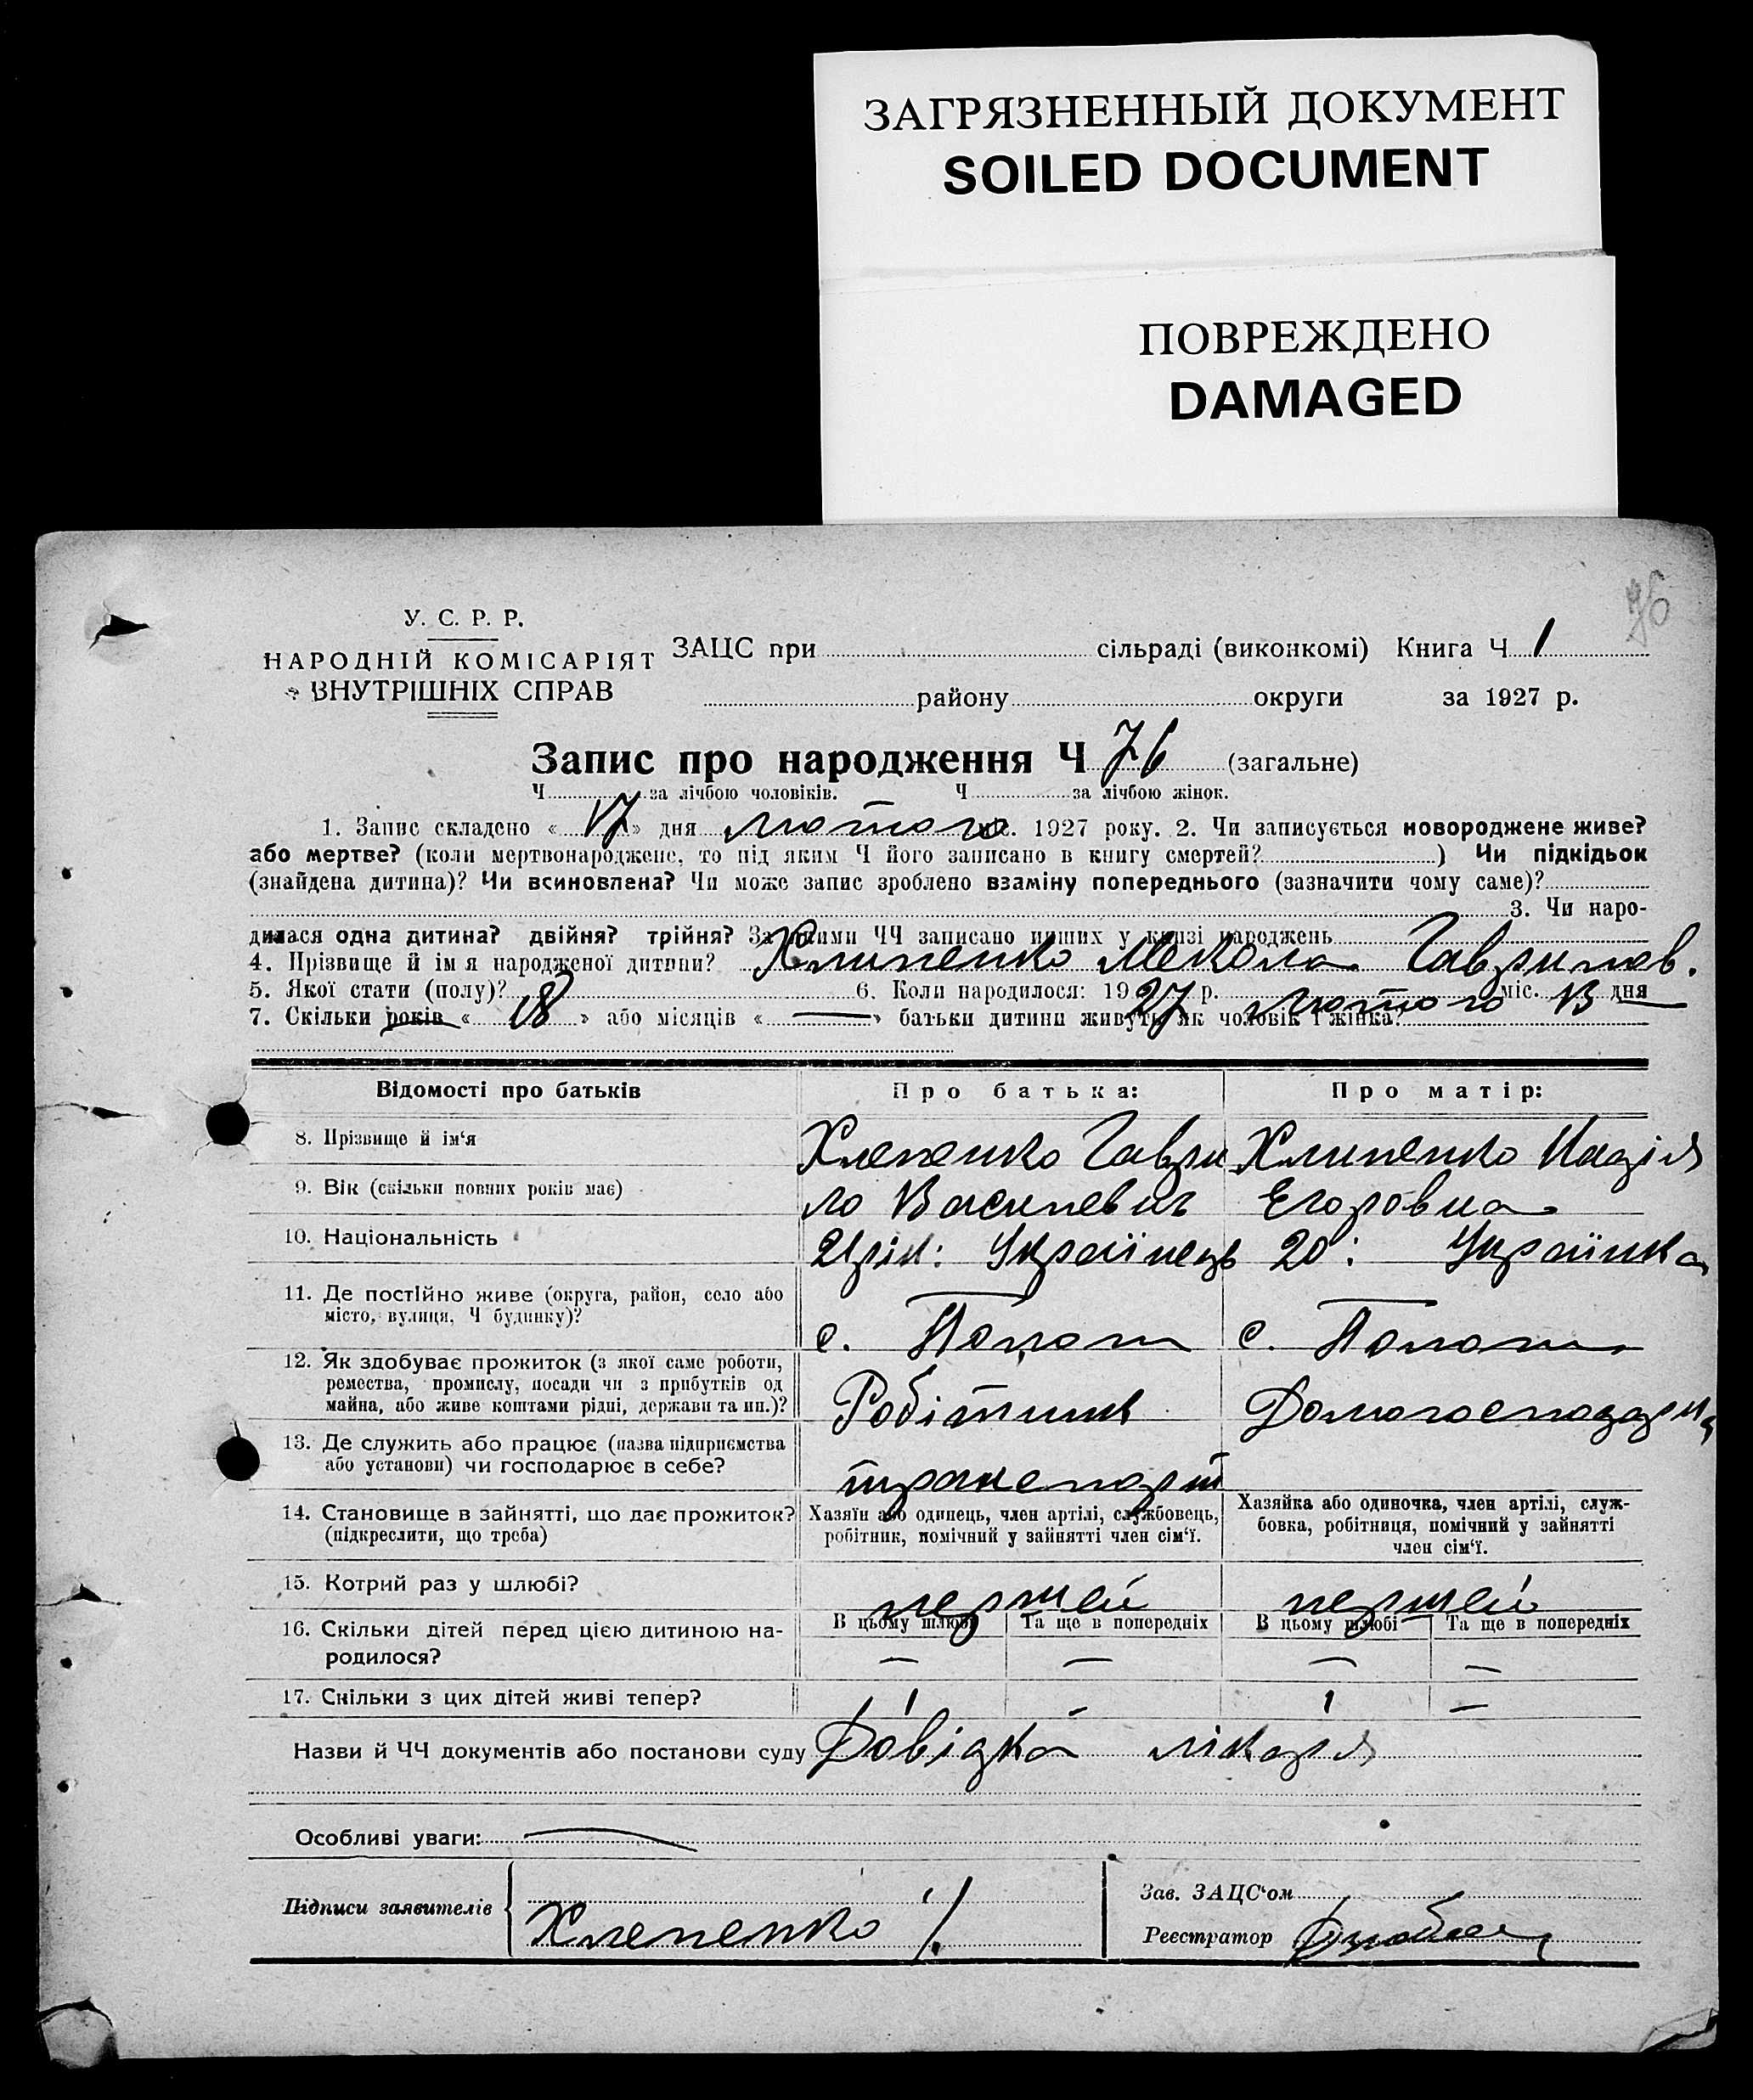 ЗАГРЯЗНЕННЫЙ ДОКУМЕНТ
SOILED DOCUMENT
ПОВРЕЖДЕНО
DAMAGED
76
У. С. Р. Р.
НАРОДНІЙ КОМІСАРІЯТ
ВНУТРІШНІХ СПРАВ
ЗАЦС при сільраді (виконкомі) Книга Ч 1
району округи за 1927 р.
Запис про народження Ч 76 (загальне)
Ч за лічбою чоловіків. Ч за лічбою жінок.
1. Запис складено « 17 » дня лютого міс. 1927 року. 2. Чи записується новороджене живе?
або мертве? (коли мертвонароджене, то під яким Ч його записано в книгу смертей? ) Чи підкідьок
(знайдена дитина)? Чи всиновлена? Чи може запис зроблено взаміну попереднього (зазначити чому саме)?
3. Чи наро-
дилася одна дитина? двійня? трійня? За якими ЧЧ записано инших у книзі народжень
4. Прізвище й ім я народженої дитини? Хлипенко Мекола Гаврилов.
5. Якої стати (полу)? 6. Коли народилося: 1927 р. лютого міс. 13 дня
7. Скільки років « 18 » або місяців « — » батьки дитини живуть як чоловік і жінка?
Відомості про батьків
Про батька:
Про матір:
8. Прізвище й ім'я
Хлепенко Гаври
Хлипенко Надія
9. Вік (скільки повних років має)
ло Василевич
Егоровна
10. Національність
21 рік: Українець
20: Українка
11. Де постійно живе (округа, район, село або
місто, вулиця, Ч будинку)?
с. Пологи
с. Пологи
12. Як здобуває прожиток (з якої саме роботи,
ремества, промислу, посади чи з прибутків од
майна, або живе коштами рідні, держави та ин.)?
Робітник
Домогосподарка
13. Де служить або працює (назва підприємства
або установи) чи господарює в себе?
транспорт
14. Становище в зайнятті, що дає прожиток?
(підкреслити, що треба)
Хазяїн або одинець, член артілі, службовець,
робітник, помічний у зайнятті член сім'ї.
Хазяйка або одиночка, член артілі, служ-
бовка, робітниця, помічний у зайнятті
член сім'ї.
15. Котрий раз у шлюбі?
першей
першей
16. Скільки дітей перед цією дитиною на-
родилося?
В цьому шлюбі Та ще в попередніх
В цьому шлюбі Та ще в попередніх
— — — —
17. Скільки з цих дітей живі тепер?
1 - 1 —
Назви й ЧЧ документів або постанови суду Довідка лікаря
Особливі уваги:
Підписи заявителів
Хлепенко
Зав. ЗАЦС'ом
Реєстратор